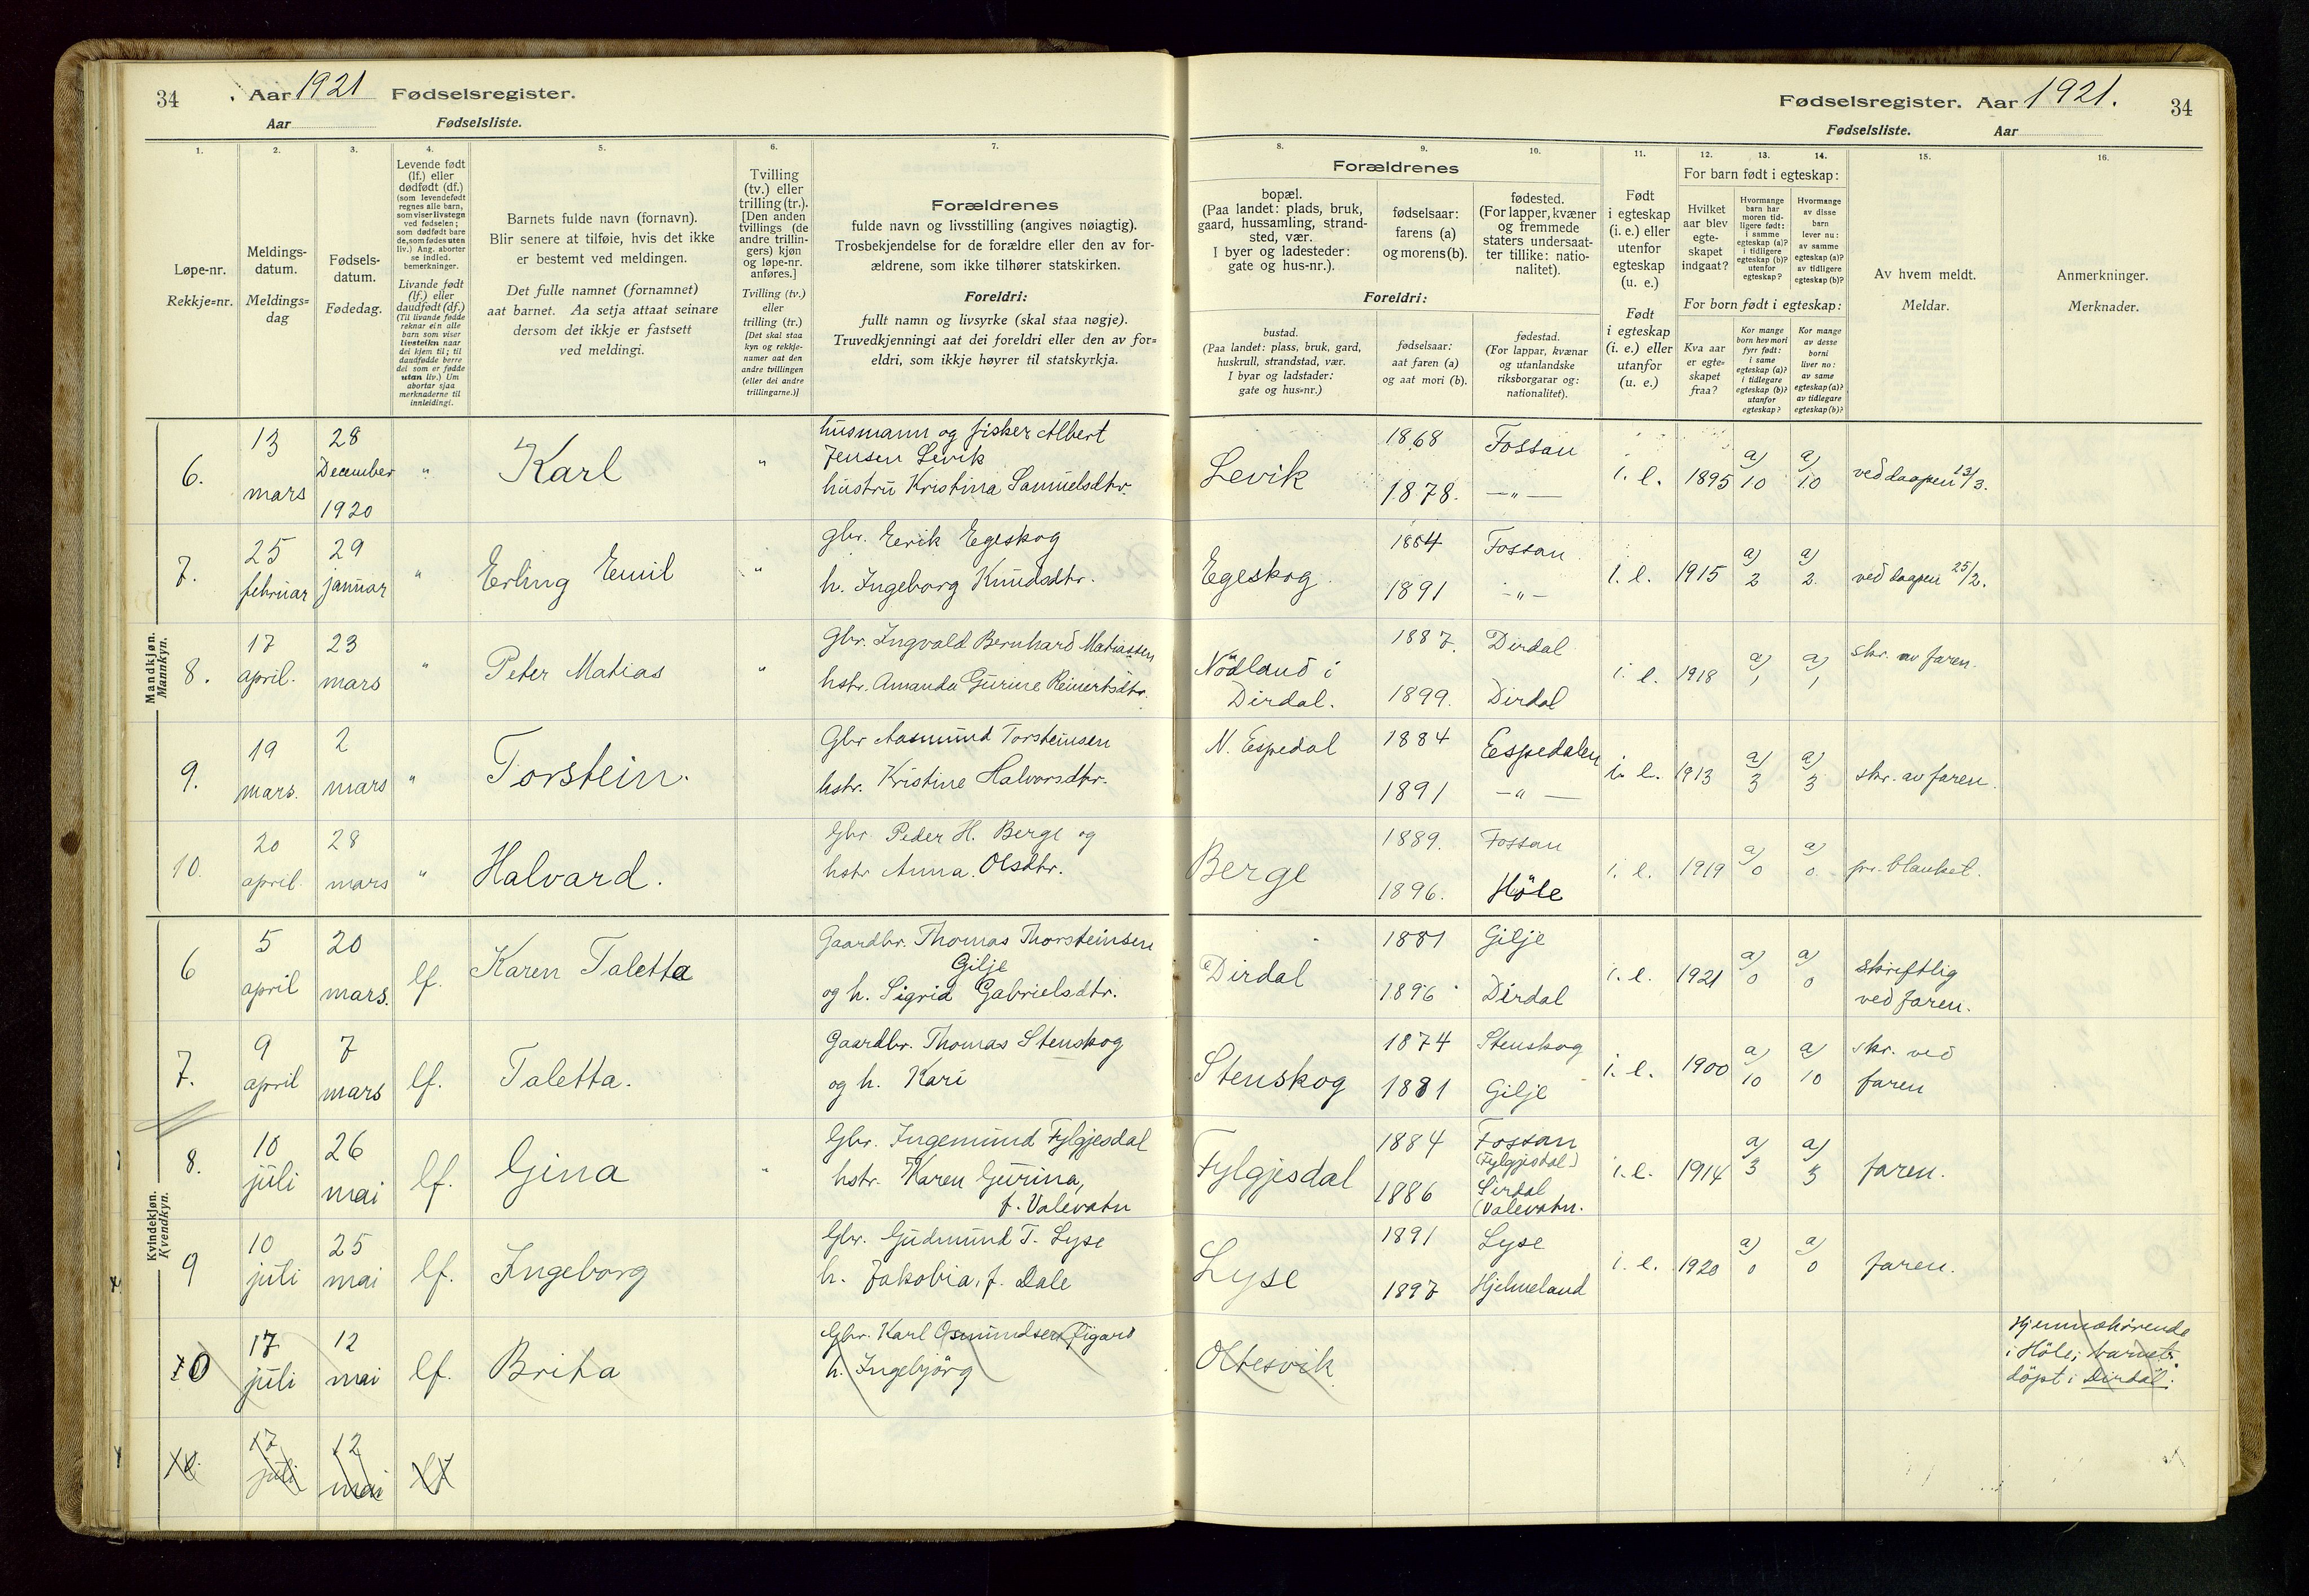 34
Aar 1921 Fødselsregister.
Aar Fødselsliste.
Fødselsregister. Aar 1921.
34
Fødselsliste. Aar
1.
Løpe-nr.
Rekkje-nr.
2.
Meldings-
datum.
Meldings-
dag
3.
Fødsels-
datum.
Fødedag.
4.
Levende født
(lf.) eller
dødfødt (df.)
(som levendefødt
regnes alle barn,
som viser livstegn
ved fødselen;
som dødfødt bare
de, som fødes uten
liv.) Ang. aborter
se indled.
bemerkninger.
Livande født
(lf.) eller
daudfødt (df.)
(Til livande fødde
reknar ein alle
barn som viser
livsteikn naar
dei kjem til; til
daudfødde berre
dei som er fødde
utan liv.) Um
abortar sjaa
merknaderne til
innleidingi.
5.
Barnets fulde navn (fornavn).
Blir senere at tilføie, hvis det ikke
er bestemt ved meldingen.
Det fulle namnet (fornamnet)
aat barnet. Aa setja attaat seinare
dersom det ikkje er fastsett
ved meldingi.
6.
Tvilling
(tv.) eller
trilling (tr.).
[Den anden
tvillings (de
andre trillin-
gers) kjøn
og løpe-nr.
anføres.]
Tvilling (tv.)
eller
trilling (tr.)
[Det skal staa
kyn og rekkje-
numer aat den
andre tvillingen
(eller dei andre
trillingarne.)]
7.
Forældrenes
fulde navn og livsstilling (angives nøiagtig).
Trosbekjendelse for de forældre eller den av for-
ældrene, som ikke tilhører statskirken.
Foreldri:
fullt namn og livsyrke (skal staa nøgje).
Truvedkjenningi aat dei foreldri eller den av for-
eldri, som ikkje høyrer til statskyrkja.
Forældrenes
8.
bopæl.
(Paa landet: plads, bruk,
gaard, hussamling, strand-
sted, vær.
I byer og ladesteder:
gate og hus-nr.).
9.
fødselsaar:
farens (a)
og morens (b).
10.
fødested.
(For lapper, kvæner
og fremmede
staters undersaat-
ter tillike: natio-
nalitet).
Foreldri:
bustad.
(Paa landet: plass, bruk, gard,
huskrull, strandstad, vær.
I byar og ladstader:
gate og hus-nr.)
fødselsaar:
aat faren (a)
og aat mori (b).
fødestad.
(For lappar, kvænar
og utanlandske
riksborgarar og:
nationalitet).
11.
Født
i egteskap
(i. e.) eller
utenfor
egteskap
(u. e.)
Født
i egteskap
(i. e.) eller
utanfor
(u. e.)
12. 13. 14.
For barn født i egteskap:
Hvilket
aar blev
egte-
skapet
indgaat?
Hvormange
barn har
moren tid-
ligere født:
i samme
egteskap (a)?
i tidligere
egteskap (b)?
utenfor
egteskap?
Hvormange
av disse
barn
lever nu:
av samme
egteskap (a)?
av tidligere
egteskap (b)?
For born født i egteskap:
Kva aar
er egte-
skapet
fraa?
Kor mange
born hev mori
fyrr født:
i same
egteskap (a)?
i tidlegare
egteskap (b)?
utanfor
egteskap?
Kor mange
av desse
borni
liver no:
av same
egteskap (a)?
av tidlegare
egteskap (b)?
15.
Av hvem meldt.
Meldar.
16.
Anmerkninger.
Merknader.
Mandkjøn.
Mannkyn.
6. 13 mars 28 December 1920 " Karl "
husmann og fisker Albert
Jensen Levik
hustru Kristina Samuelsdtr.
Levik 1868 Fossan 1878. —"— i. e. 1895 a) 10 a) 10 ved daapen 13/3.
7. 25 februar 29 januar " Erling Emil "
gbr. Eerik Egeskog
h. Ingeborg Knudsdtr.
Egeskog 1884 Fossan 1891 —"— i. e. 1915 a) 2 a) 2 ved daapen 25/2.
8. 17 april. 23 mars " Peter Matias "
Gbr. Ingvald Bernhard Matiassen
hstr. Amanda Gurine Reinertsdtr.
Nödland i Dirdal. 1887. Dirdal 1899. Dirdal i. e. 1918 a) 1 a) 1 skr. av faren.
9. 19 mars. 2 mars " Torstein.
Gbr Aasmund Torsteinsen
hstr. Kristine Halvorsdtr.
N. Espedal 1884 Eespedalen 1891 —"— i. e. 1913 a) 3 a) 3 skr. av faren.
10. 20 april. 28 mars " Halvard.
Gbr. Peder H. Berge og
hstr Anna Olsdtr.
Berge 1889. Fossan 1896. Höle i. e. 1919 a) 0 a) 0 pr. blanket.
Kvindekjøn.
Kvendkyn.
6 5 april 20 mars. lf. Karen Taletta
Gaardbr. Thomas Thorsteinsen
Gilje
og h. Sigrid Gabrielsdtr.
Dirdal 1881 Gilje 1896 Dirdal i. e. 1921 a) 0 a) 0 skriftlig ved faren.
7. 9 april 7 mars lf. Taletta.
Gaardbr. Thomas Stenskog
og h. Kari
Stenskog 1874 Stenskog 1881 Gilje i. e. 1900 a) 10 a) 10 skr. ved faren
8. 10 juli 26 mai lf. Gina "
Gbr. Ingemund Fylgjesdal
hstr. Karen Gurina,
f. Valevatn
Fylgjesdal 1884 Fossan (Fylgjesdal) 1886 Sirdal (Valevatn. i. e. 1914 a) 3 a) 3 faren.
9 10 juli 25 mai lf. Ingeborg
Gbr. Gudmund T. Lyse
h. Jakobia, f. Dale
Lyse 1891 Lyse 1897 Hjelmeland i. e. 1920 a) 0 a) 0 faren.
10 17 juli 12 mai lf. Brita
Gbr. Karl Osmundsen
h. Ingebjörg
Oltesvik
Hjemmehörende
i Höle; barnet
döpt i Dirdal.
17 juli 12 mai lf